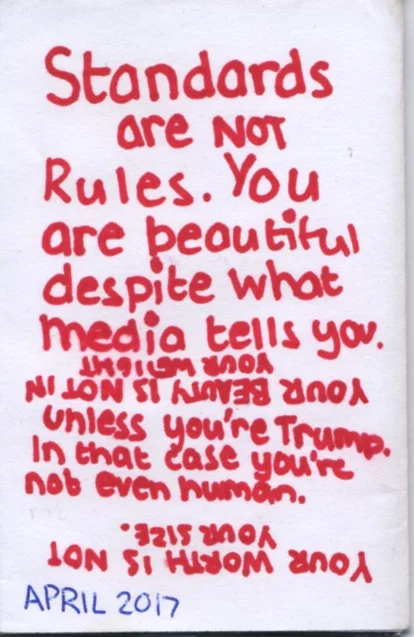 Standards
are NOT
Rules. You
are beautiful
despite what
media tells you.
YOUR BEAUTY IS NOT IN
YOUR WEIGHT
Unless you're Trump.
In that case you're
not even human.
YOUR WORTH IS NOT
YOUR SIZE.
APRIL 2017